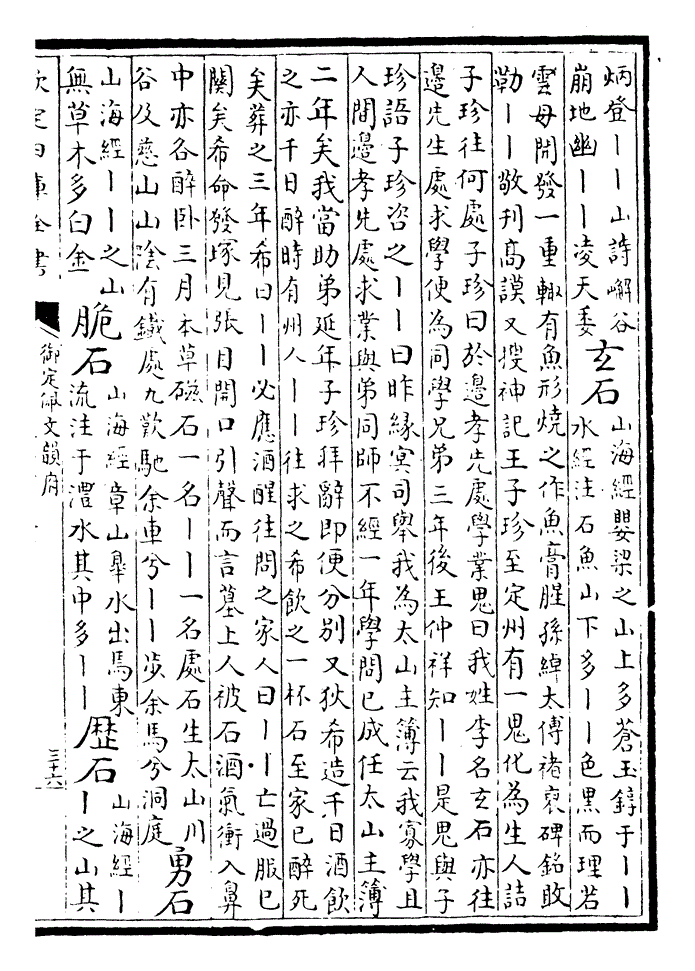 炳登丨丨山詩嶰谷
崩地幽丨丨凌天委
玄石
山海經嬰梁之山上多蒼玉錞于丨丨
水經注石魚山下多丨丨色黑而理若
雲母開發一重輙有魚形燒之作魚膏腥孫綽太傅褚裒碑銘敢
勒丨丨敬刊髙謨又搜神記王子珍至定州有一鬼化為生人詰
子珍往何處子珍曰於邊孝先處學業鬼曰我姓李名玄石亦往
邊先生處求學便為同學兄弟三年後王仲祥知丨丨是鬼與子
珍語子珍咨之丨丨曰昨緣㝠司舉我為太山主簿云我寡學且
人間邊孝先處求業與弟同師不經一年學問已成任太山主簿
二年矣我當助弟延年子珍拜辭即便分别又狄希造千日酒飲
之亦千日醉時有州人丨丨往求之希飲之一杯石至家已醉死
矣葬之三年希曰丨丨必應酒醒往問之家人曰丨丨亡過服已
闋矣希命發塚見張目開口引聲而言墓上人被石酒氣衝入鼻
中亦各醉卧三月本草磁石一名丨丨一名處石生太山川
谷及慈山山隂有鐵處九歎馳余車兮丨丨步余馬兮洞庭
勇石
山海經丨丨之山
無草木多白金
脆石
山海經章山臯水出焉東
流注于澧水其中多丨丨
歴石
山海經丨
丨之山其
欽定四庫全書
御定佩文韻府
三十六